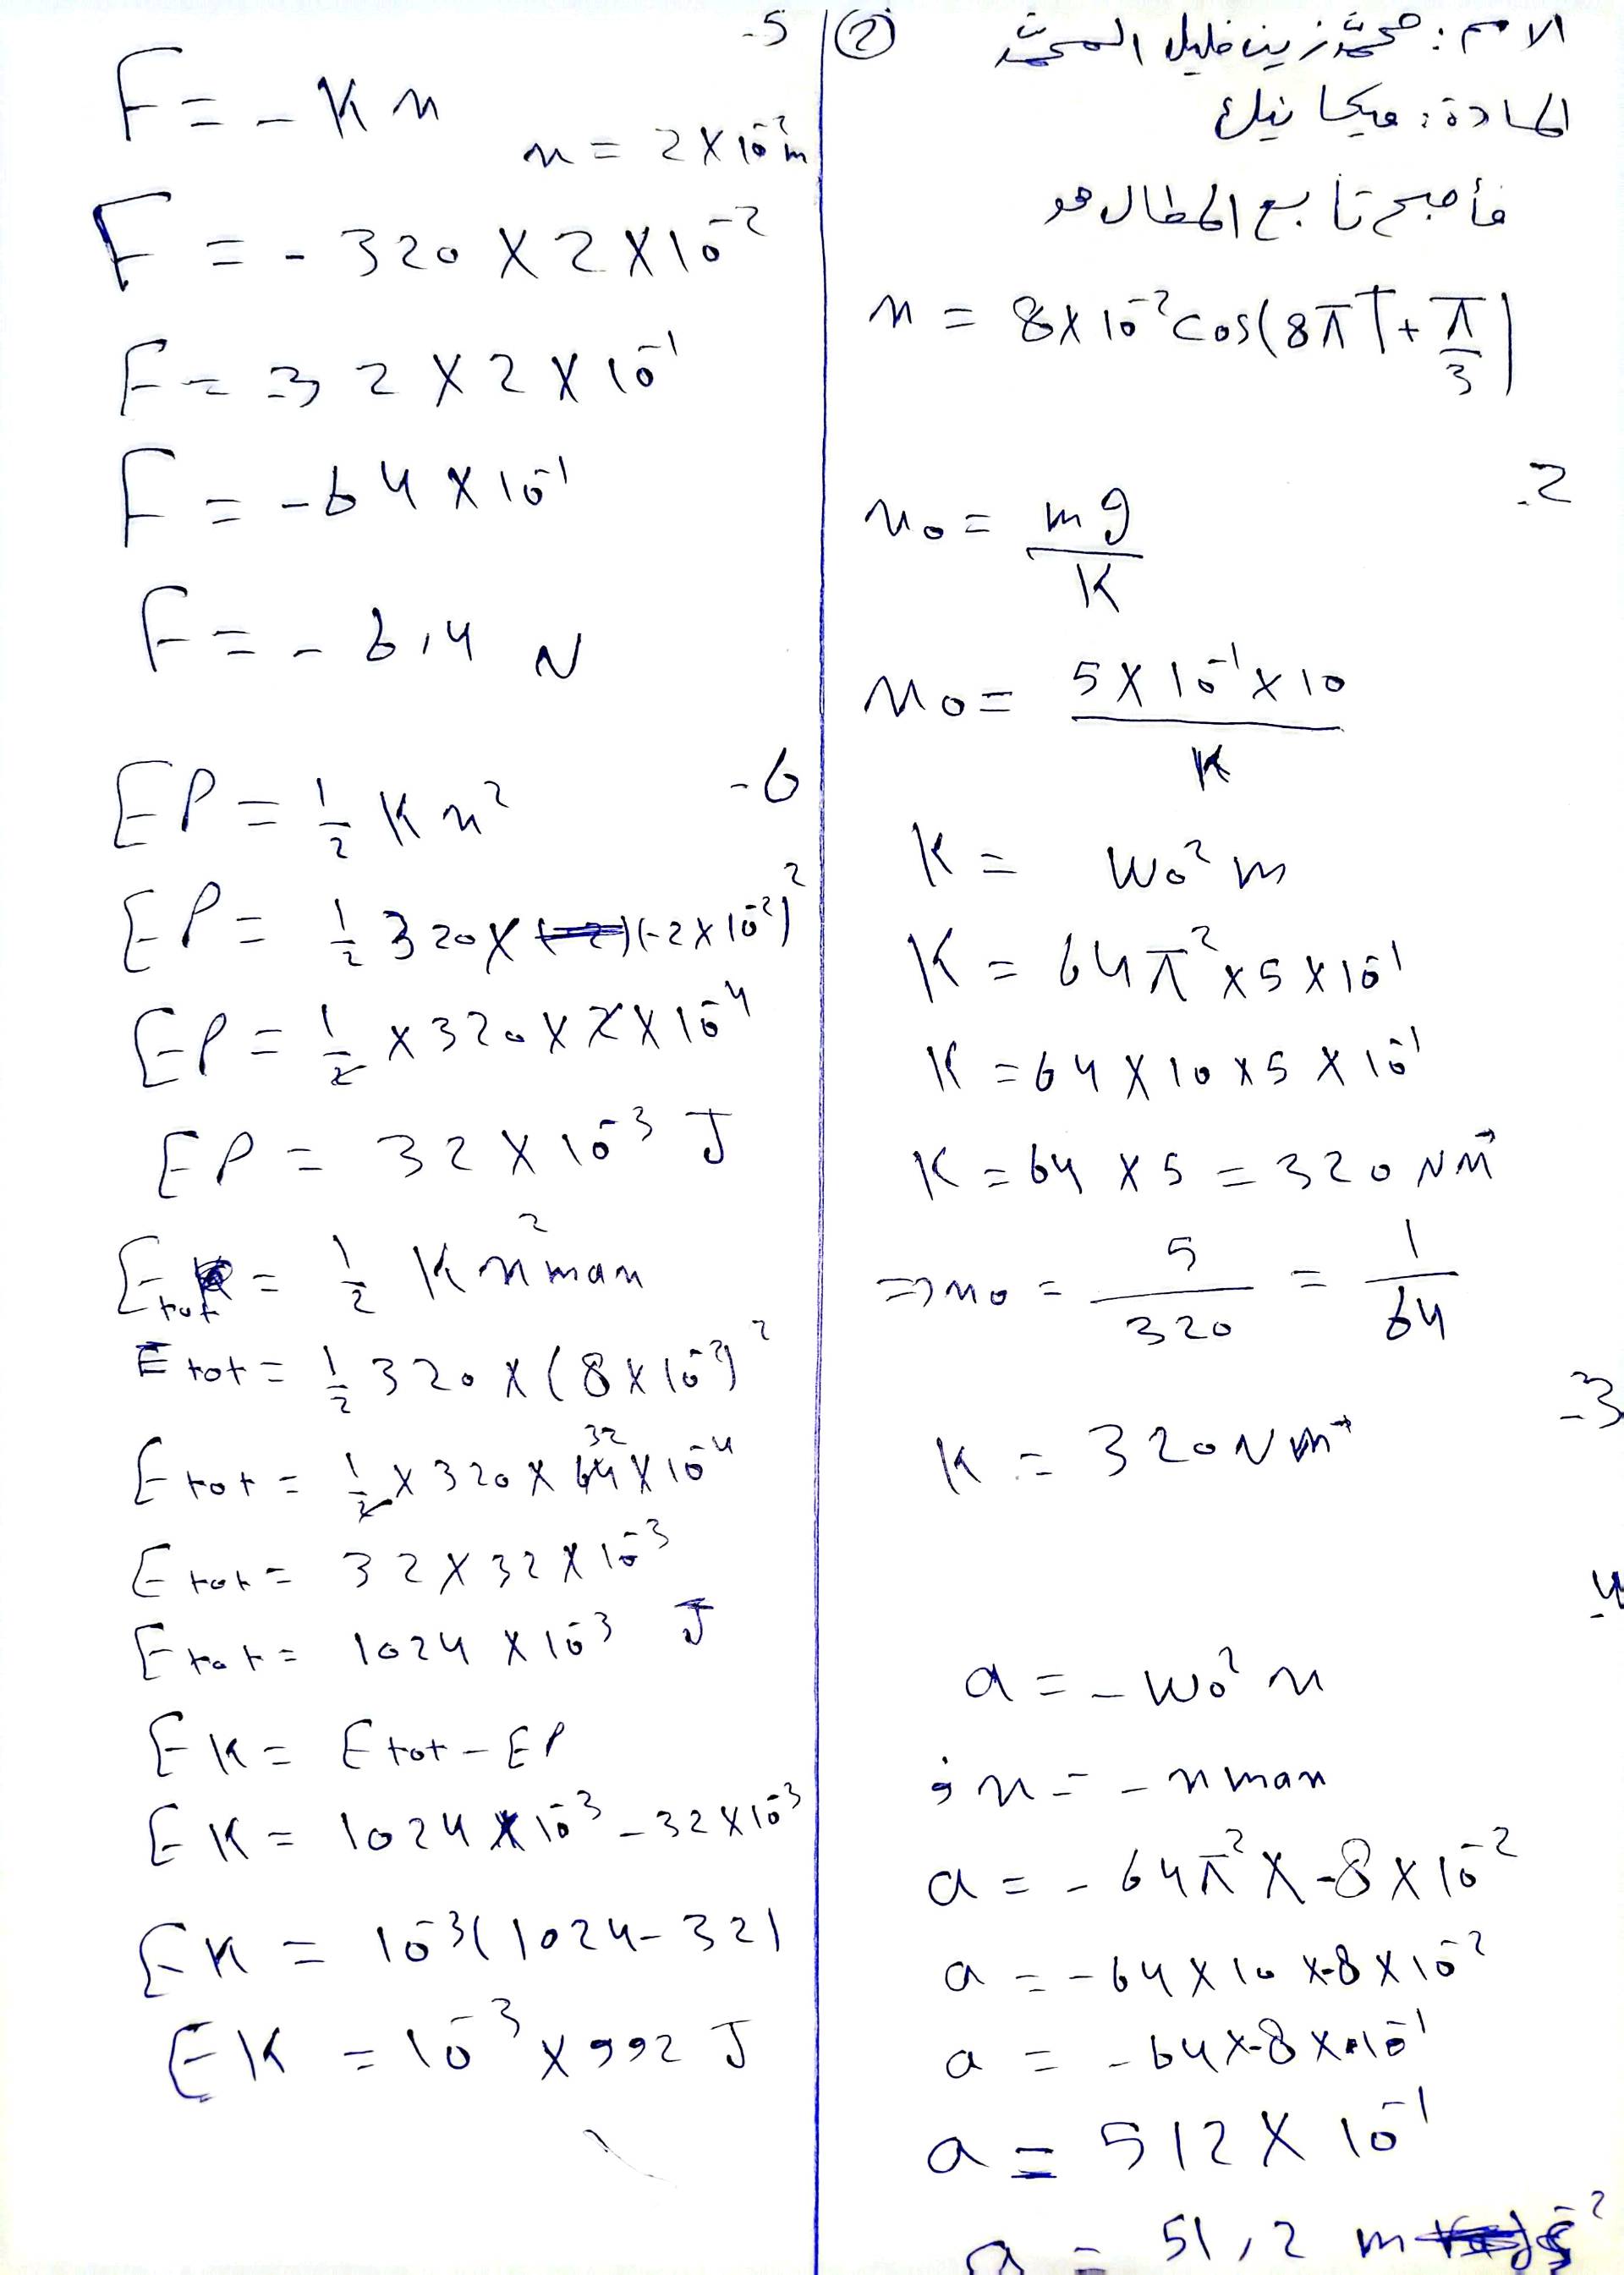 ②
الاسم: محمّد زين خليل المحمّد
المادة: ميكانيك
فأصبح تابع المطال هو
x = 8×10⁻² cos(8πT + π/3)
2-
x₀ = mg/K
x₀ = 5×10⁻¹×10/K
K = W₀² m
K = 64π² × 5 × 10⁻¹
K = 64 × 10 × 5 × 10⁻¹
K = 64 × 5 = 320 N m⁻¹
⇒ x₀ = 5/320 = 1/64
3-
K = 320 N m⁻¹
4-
a = - W₀² x
; x = - x max
a = - 64π² × -8 × 10⁻²
a = - 64 × 10 × -8 × 10⁻²
a = - 64 × -8 × 10⁻¹
a = 512 × 10⁻¹
a = 51,2 m s⁻²
5-
F = - K x
x = 2 × 10⁻² m
F = - 320 × 2 × 10⁻²
F = -32 × 2 × 10⁻¹
F = -64 × 10⁻¹
F = - 6,4 N
6-
EP = 1/2 K x²
EP = 1/2 320 × (-2 × 10⁻²)²
EP = 1/2 × 320 × 2 × 10⁻⁴
EP = 32 × 10⁻³ J
E tot = 1/2 K x² max
E tot = 1/2 320 × (8 × 10⁻²)²
E tot = 1/2 × 320 × 64 32 × 10⁻⁴
E tot = 32 × 32 × 10⁻³
E tot = 1024 × 10⁻³ J
EK = E tot - EP
EK = 1024 × 10⁻³ - 32 × 10⁻³
EK = 10⁻³ (1024 - 32)
EK = 10⁻³ × 992 J